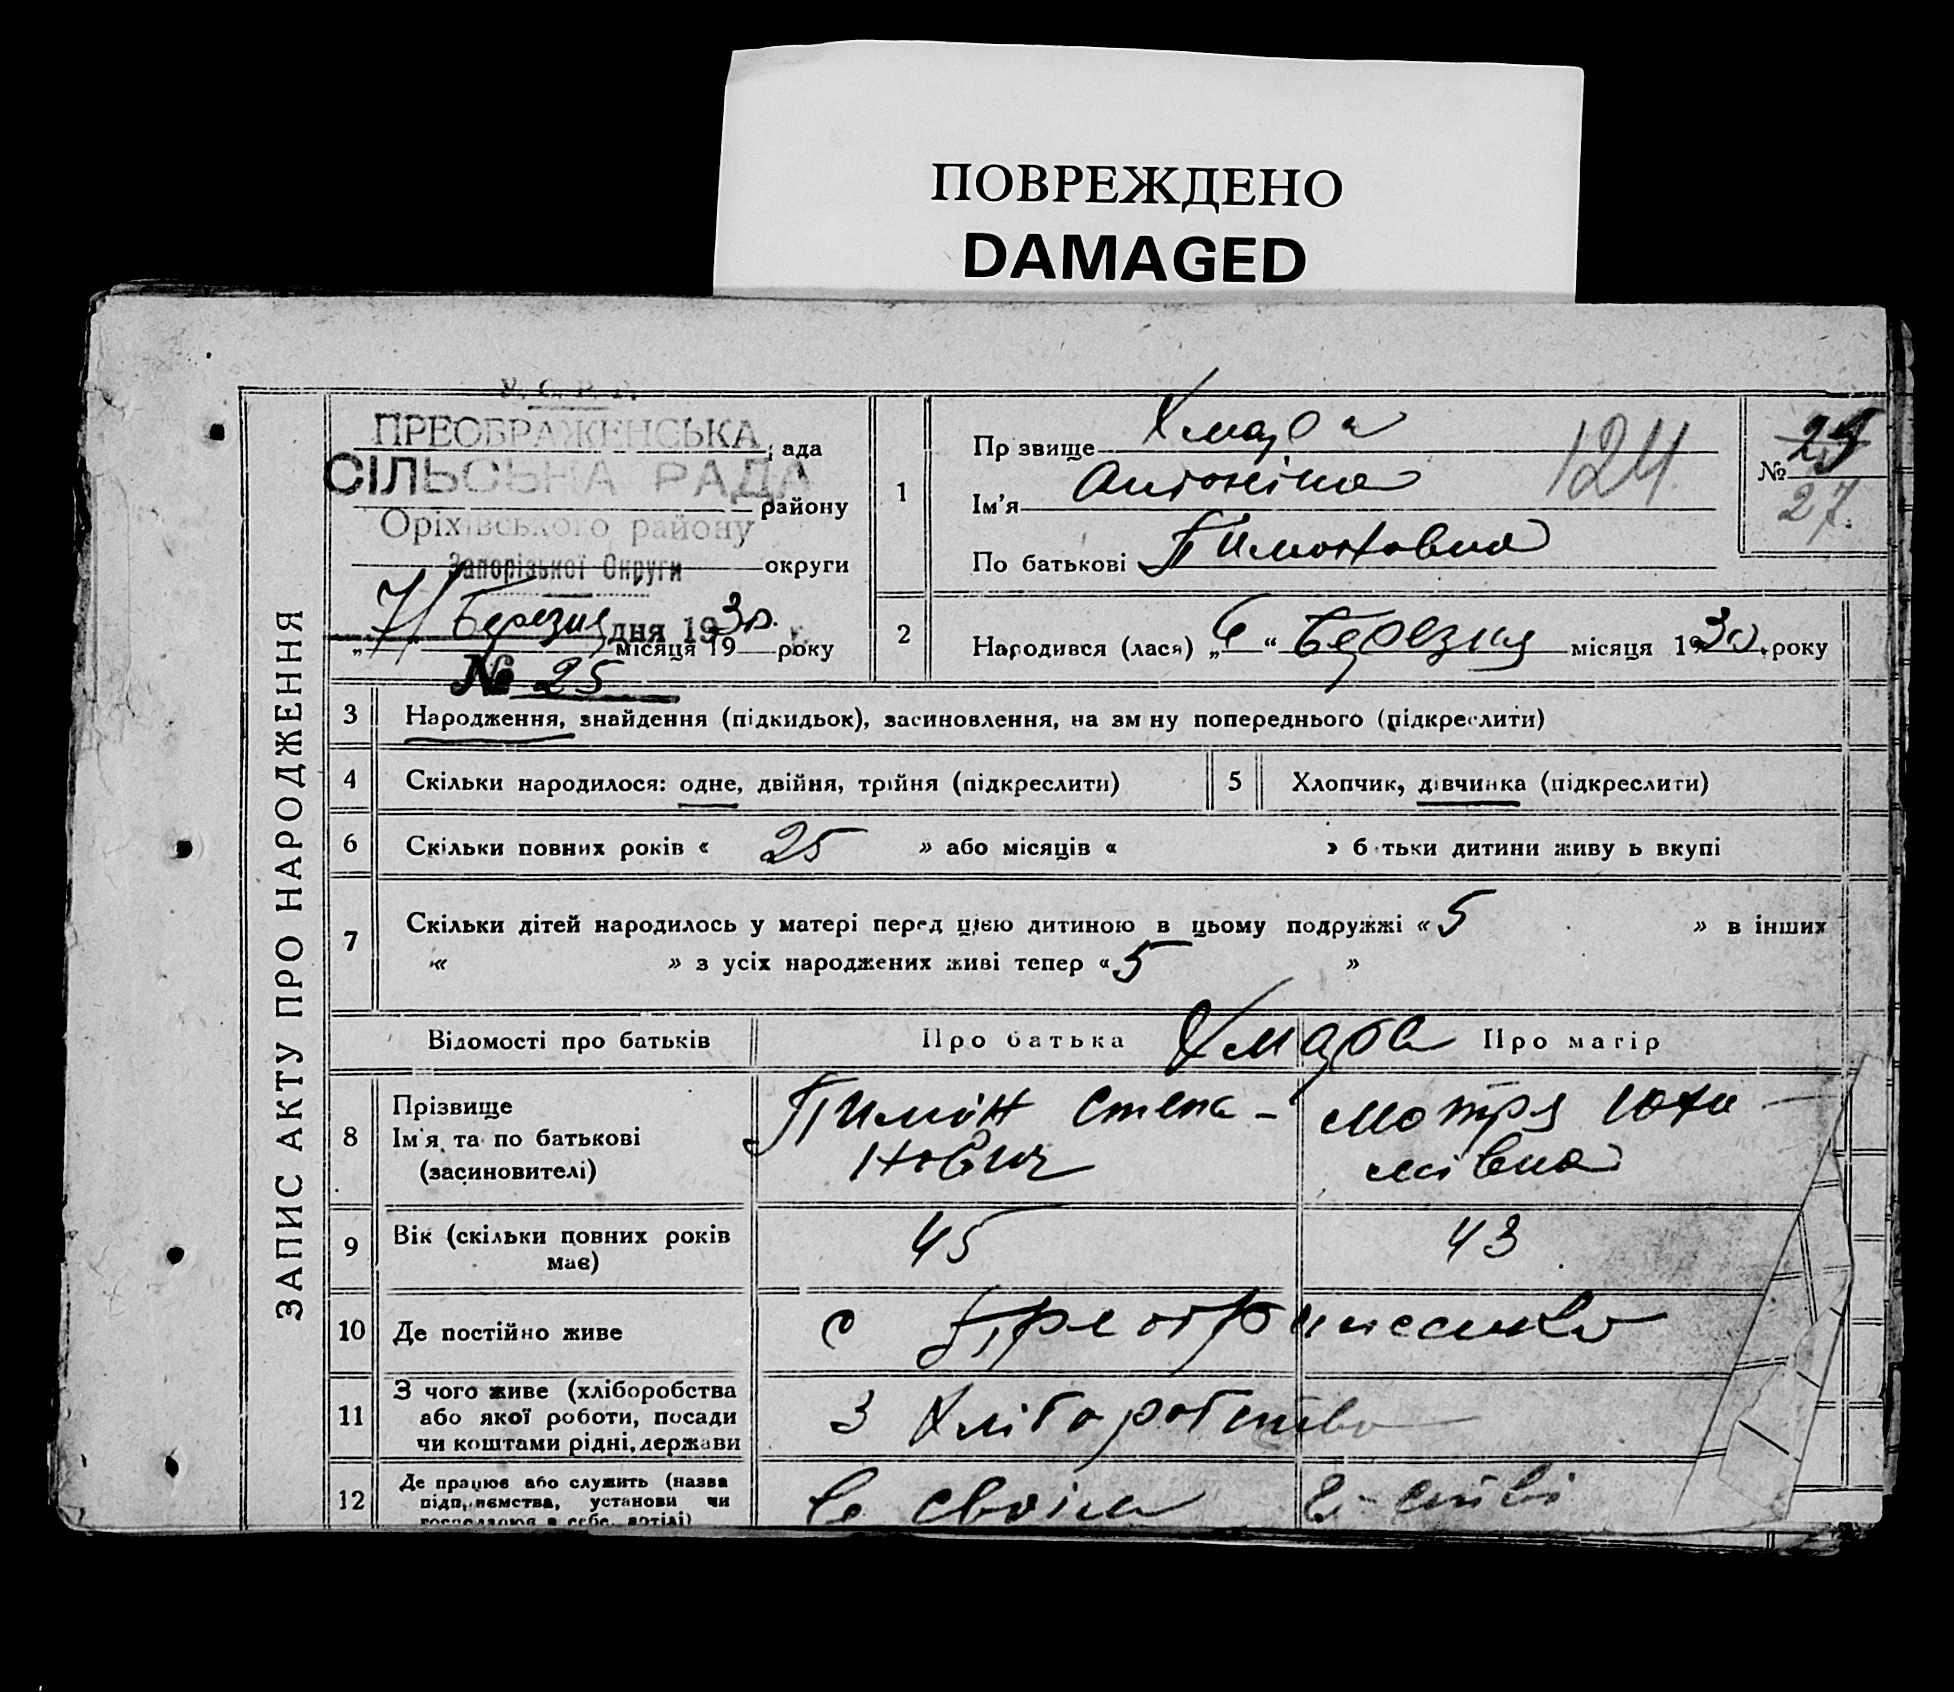 ПОВРЕЖДЕНО
DAMAGED
ЗАПИС АКТУ ПРО НАРОДЖЕННЯ
У. С. Р. Р.
ПРЕОБРАЖЕНСЬКА ада
СІЛЬСЬКА РАДА
району
Оріхівського району
Запорізької Округи округи
„7" Березня дня 1930.
місяця 19 року
№ 25
1 Пр звище Хмара
Ім'я Антоніна
По батькові Тимоновна
124
№ 25
27.
2 Народився (лася) „6“ Березня місяця 1930. року
3 Народження, знайдення (підкидьок), засиновлення, на зм ну попереднього (підкреслити)
4 Скільки народилося: одне, двійня, трійня (підкреслити) 5 Хлопчик, дівчинка (підкреслити)
6 Скільки повних років « 25 » або місяців « » б тьки дитини живу ь вкупі
7 Скільки дітей народилось у матері перед цією дитиною в цьому подружжі « 5 » в інших
« » з усіх народжених живі тепер « 5 »
Відомості про батьків Про батька Хмара Про матір
8 Прізвище
Ім'я та по батькові
(засиновителі)
Тимон Степа-
нович
Мотря
9 Вік (скільки повних років
має)
45 43
10 Де постійно живе с Преображенка
11 З чого живе (хліборобства
або якої роботи, посади
чи коштами рідні, держави
З Хліборобства
12 Де працює або служить (назва
підприємства, установи чи
господарює в себе, артілі)
в своім г-стві